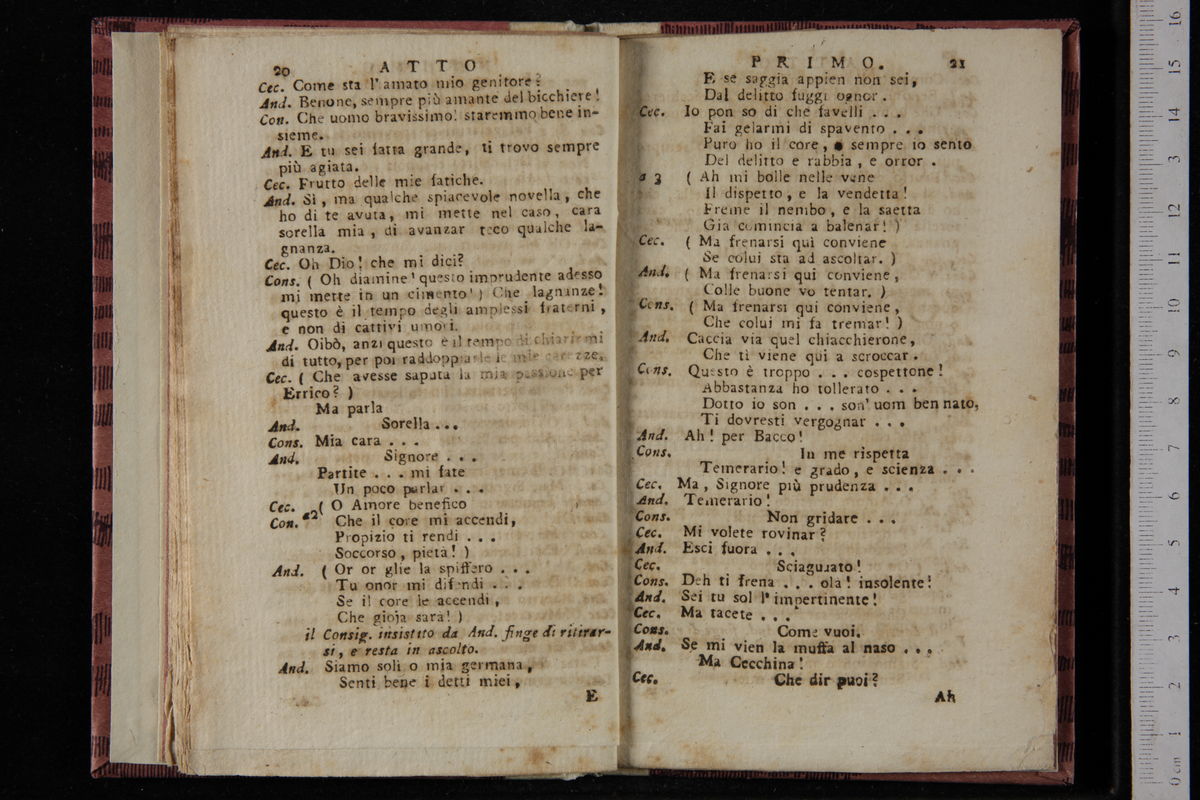 20 ATTO
Cec. Come sta l'amato mio genitore?
And. Benone, sempre più amante del bicchiere!
Con. Che uomo bravissimo! staremmo bene in-
sieme.
And. E tu sei fatta grande, ti trovo sempre
più agiata.
Cec. Frutto delle mie fatiche.
And. Sì, ma qualche spiacevole novella, che
ho di te avuta, mi mette nel caso, cara
sorella mia, di avanzar teco qualche la-
gnanza.
Cec. Oh Dio! che mi dici?
Cons. ( Oh diamine! questo imprudente adesso
mi mette in un cimento! ) Che lagnanze!
questo è il tempo degli amplessi fraterni,
e non di cattivi umori.
And. Oibò, anzi questo è il tempo di chiarirmi
di tutto, per poi raddoppiarle le mie carezze.
Cec. ( Che avesse saputa la mia passione per
Errico? )
Ma parla
And. Sorella...
Cons. Mia cara . . .
And. Signore . . .
Partite . . . mi fate
Un poco parlar . . .
Cec. ( O Amore benefico
Con. a2 Che il core mi accendi,
Propizio ti rendi . . .
Soccorso, pietà! )
And. ( Or or glie la spiffero . . .
Tu onor mi difendi . . .
Se il core le accendi,
Che gioja sarà! )
il Consig. insistito da And. finge di ritirar-
si, e resta in ascolto.
And. Siamo soli o mia germana,
Senti bene i detti miei,
E
PRIMO. 21
E se saggia appien non sei,
Dal delitto fuggi ognor.
Cec. Io pon so di che favelli . . .
Fai gelarmi di spavento . . .
Puro ho il core, e sempre io sento
Del delitto e rabbia, e orror.
a 3 ( Ah mi bolle nelle vene
Il dispetto, e la vendetta!
Freme il nembo, e la saetta
Già comincia a balenar! )
Cec. ( Ma frenarsi quì conviene
Se colui sta ad ascoltar. )
And. ( Ma frenarsi qui conviene,
Colle buone vo tentar. )
Cons. ( Ma frenarsi qui conviene,
Che colui mi fa tremar! )
And. Caccia via quel chiacchierone,
Che tì viene qui a scroccar.
Cons. Questo è troppo . . . cospettone!
Abbastanza ho tollerato . . .
Dotto io son . . . son' uom ben nato,
Ti dovresti vergognar . . .
And. Ah! per Bacco!
Cons. In me rispetta
Temerario! e grado, e scienza . . .
Cec. Ma, Signore più prudenza . . .
And. Temerario!
Cons. Non gridare . . .
Cec. Mi volete rovinar?
And. Esci fuora . . .
Cec. Sciagurato!
Cons. Deh ti frena . . . ola! insolente!
And. Sei tu sol l'impertinente!
Cec. Ma tacete . . .
Cons. Come vuoi.
And. Se mi vien la muffa al naso . . .
Ma Cecchina!
Cec. Che dir puoi?
Ah
0 cm 1 2 3 4 5 6 7 8 9 10 11 12 13 14 15 16